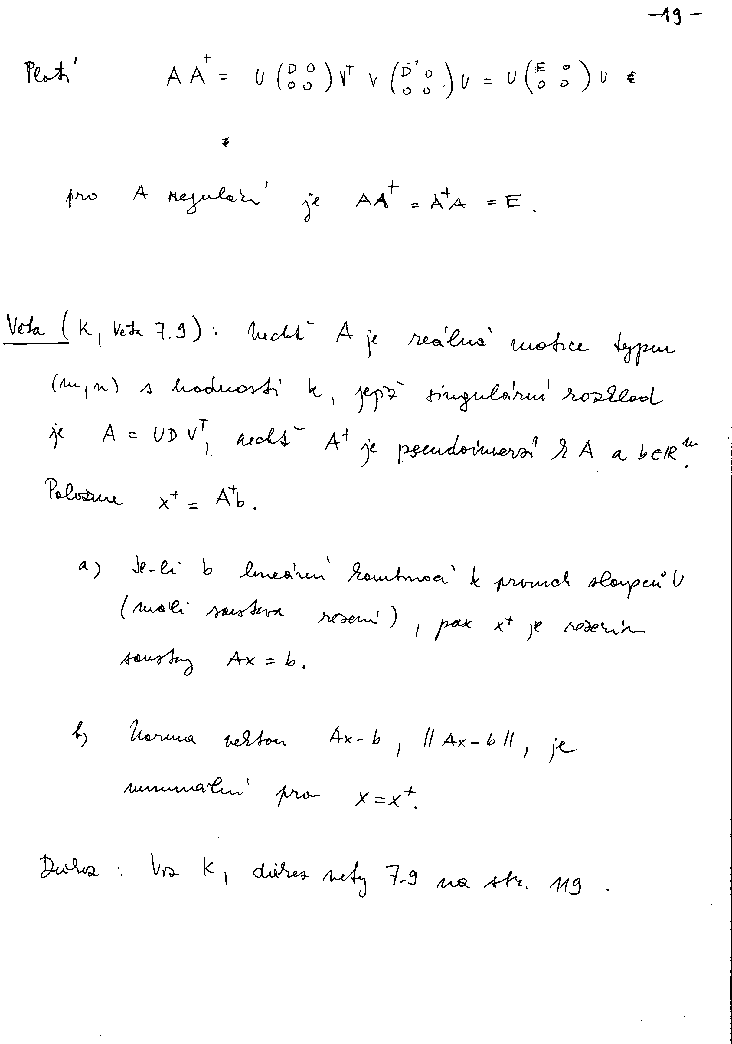 -19-
Platí A A⁺ = U (D 0 0 0) Vᵀ V (D' 0 0 0) U = U (E 0 0 0) U
pro A regulární je AA⁺ = A⁺A = E.
Věta (K, Věta 7.9): Nechť A je reálná matice typu
(m,n) s hodností k, jejíž singulární rozklad
je A = UDVᵀ, nechť A⁺ je pseudoinverzí k A a b∈Rᵐ.
Položme x⁺ = A⁺b.
a) Je-li b lineární kombinací k prvních sloupců U
(má-li soustava řešení), pak x⁺ je řešením
soustavy Ax = b.
b) Norma vektoru Ax-b, ||Ax-b||, je
minimální pro x=x⁺.
Důkaz: Viz K, důkaz věty 7.9 na str. 119.